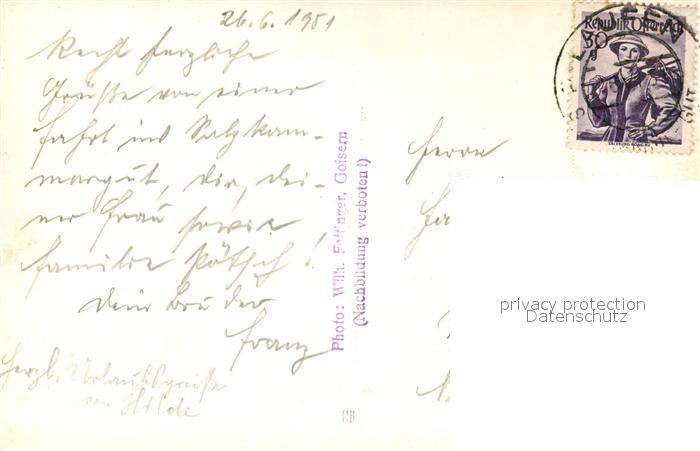 26.6.1951
Recht herzliche
Grüße von einer
Fahrt ins Salzkam-
mergut, Dir, Dei-
ner Frau sowie
Familie Pötsch!
Dein Bruder
Franz
Herzl. Urlaubsgrüße
von Hilde
Photo: Wilh. Fettinger, Goisern
(Nachbildung verboten!)
HB
Herrn
Republik Österreich
30
g
privacy protection
Datenschutz